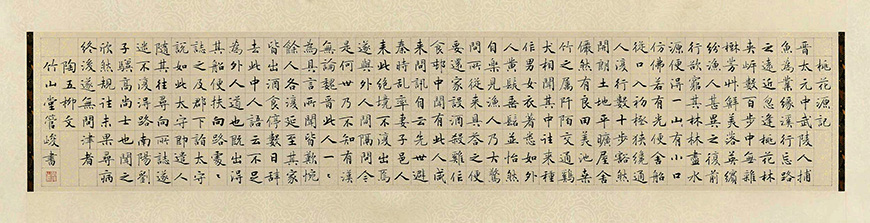 桃花源記
晉太元中武陵人捕
魚為業緣溪行忘路
之遠近忽逢桃花林
夾岸數百步中無雜
樹芳草鮮美落英繽
紛漁人甚異之復前
行欲窮其林林盡水
源便得一山有小口
仿佛若有光便舍船
從口入初極狹纔通
人復行數十步豁然
開朗土地平曠屋舍
儼然有良田美池桑
竹之屬阡陌交通雞
犬相聞其中往來種
作男女衣著悉如外
人黃髮垂髫並怡然
自樂見漁人乃大驚
問所從來具答之便
要還家設酒殺雞作
食邨中聞有此人咸
來問訊自云先世避
秦時亂率妻子邑人
來此絕境不復出焉
遂與外人間隔問今
是何世乃不知有漢
無論魏晉此人一〻
為具言所聞皆歎惋
餘人各復延至其家
皆出酒食停數日辭
去此中人語云不足
為外人道也既出得
其船便扶向路處〻
誌之及郡下詣太守
說如此太守即遣人
隨其往尋向所誌遂
迷不復得路南陽劉
子驥高尚士也聞之
欣然規往未果尋病
終後遂無問津者
陶五柳文
竹山堂管峻書